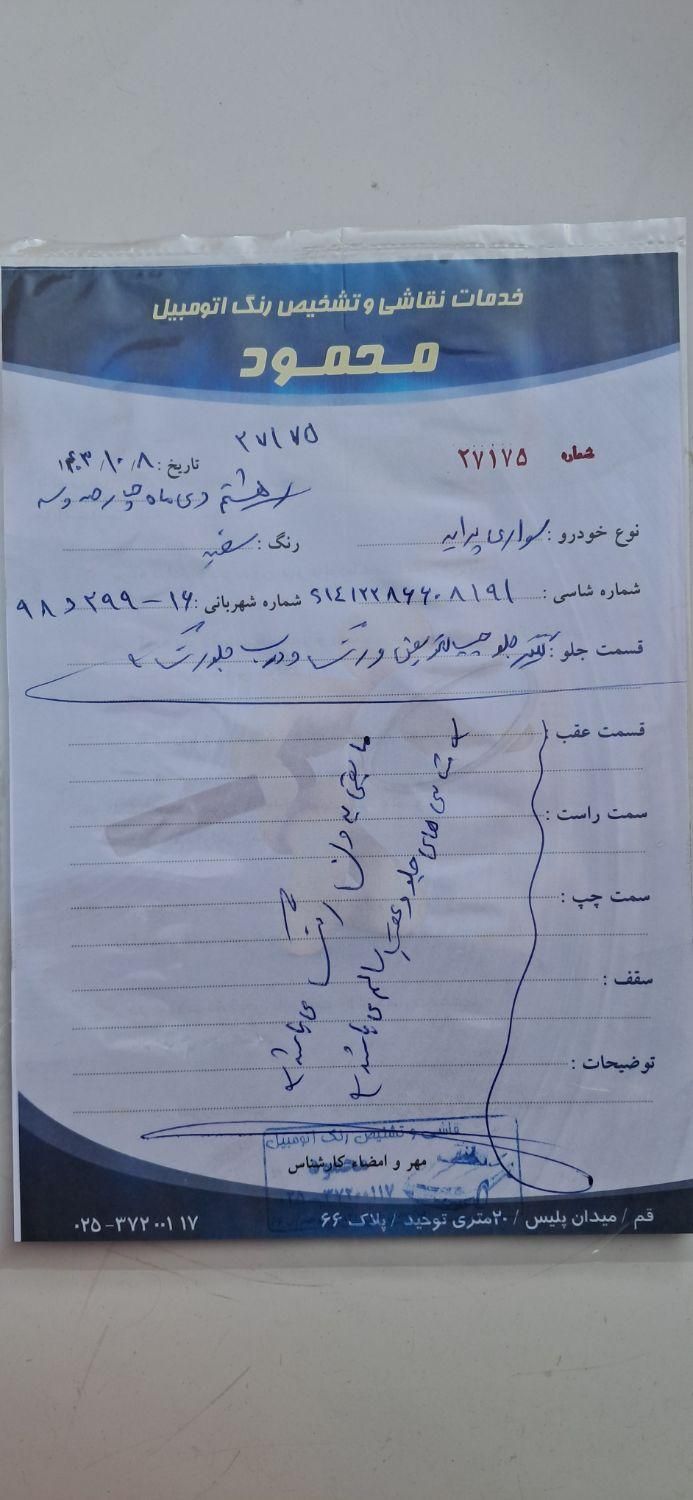 خدمات نقاشی و تشخیص رنگ اتومبیل
محمود
۲۷۱۷۵
شماره ۲۷۱۷۵
تاریخ : ۱۴۰۳/۱۰/۸
هشتم دی ماه چهارصد و سه
نوع خودرو : سواری پراید رنگ : سفید
شماره شاسی : S1412286608191 شماره شهربانی : ۹۸ د ۲۹۹ - ۱۶
قسمت جلو : گلگیر جلو چپ تعویض و رنگ و درب جلو رنگ
قسمت عقب :
سمت راست :
سمت چپ :
سقف :
توضیحات :
شاسی های جلو و عقب سالم می باشد
مابقی بدون رنگ می باشد
نقاشی و تشخیص رنگ اتومبیل
محمود
مهر و امضاء کارشناس
قم / میدان پلیس / ۲۰متری توحید / پلاک ۶۶
۰۲۵-۳۷۲۰۰۱۱۷